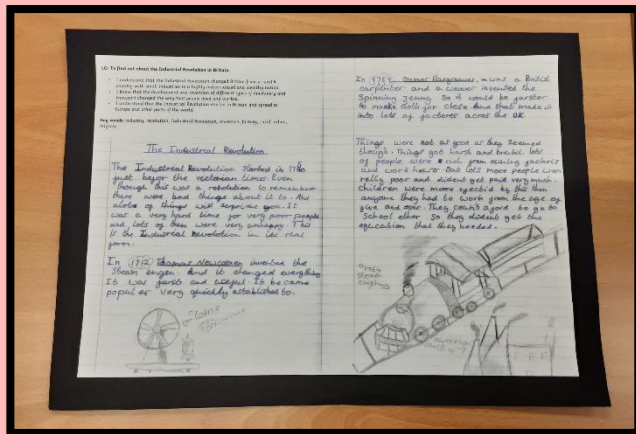 LO: To find out about the Industrial Revolution in Britain.
I understand that the Industrial Revolution changed Britain from a
country with small industries to a highly industrialised and wealthy nation.
I know that the development and invention of different types of machinery and
transport changed the way that people lived and worked.
I understand that the Industrial Revolution started in Britain and spread to
Europe and other parts of the world.
Key words: industry, revolution, Industrial Revolution, inventors, factory,
The Industrial Revolution
The Industrial Revolution started in 1780
just befor the victorian times. Even
though this was a revolution to remember
there were bad things about it to. And
alots of things will surprise you. It
was a very hard time for very poor people
and lots of them were very unhappy. This
is the Industrial Revolution in its real
form.
In 1712 Thomas Newcomen invented the
Steam engen. And it changed everything
It was fast and useful. It became
popular very quickly established to.
In 1764 James Hargreaves, a was a British
carpenter and a weaver invented the
Spinning Jenny. So it would be
to make cloth for And that made it
into lots of factores across the UK.
Things were not as good as they seemed
though. Things got harsh and lots
of people were rich from owning factoris
and work hours. But lots more people were
relly poor and dident get paid very much.
Children were more by this than
anyone they had to work from the age of
five and over. They afford to go to
School ether So they dident get the
education that they needed.
1764
Steam
engine